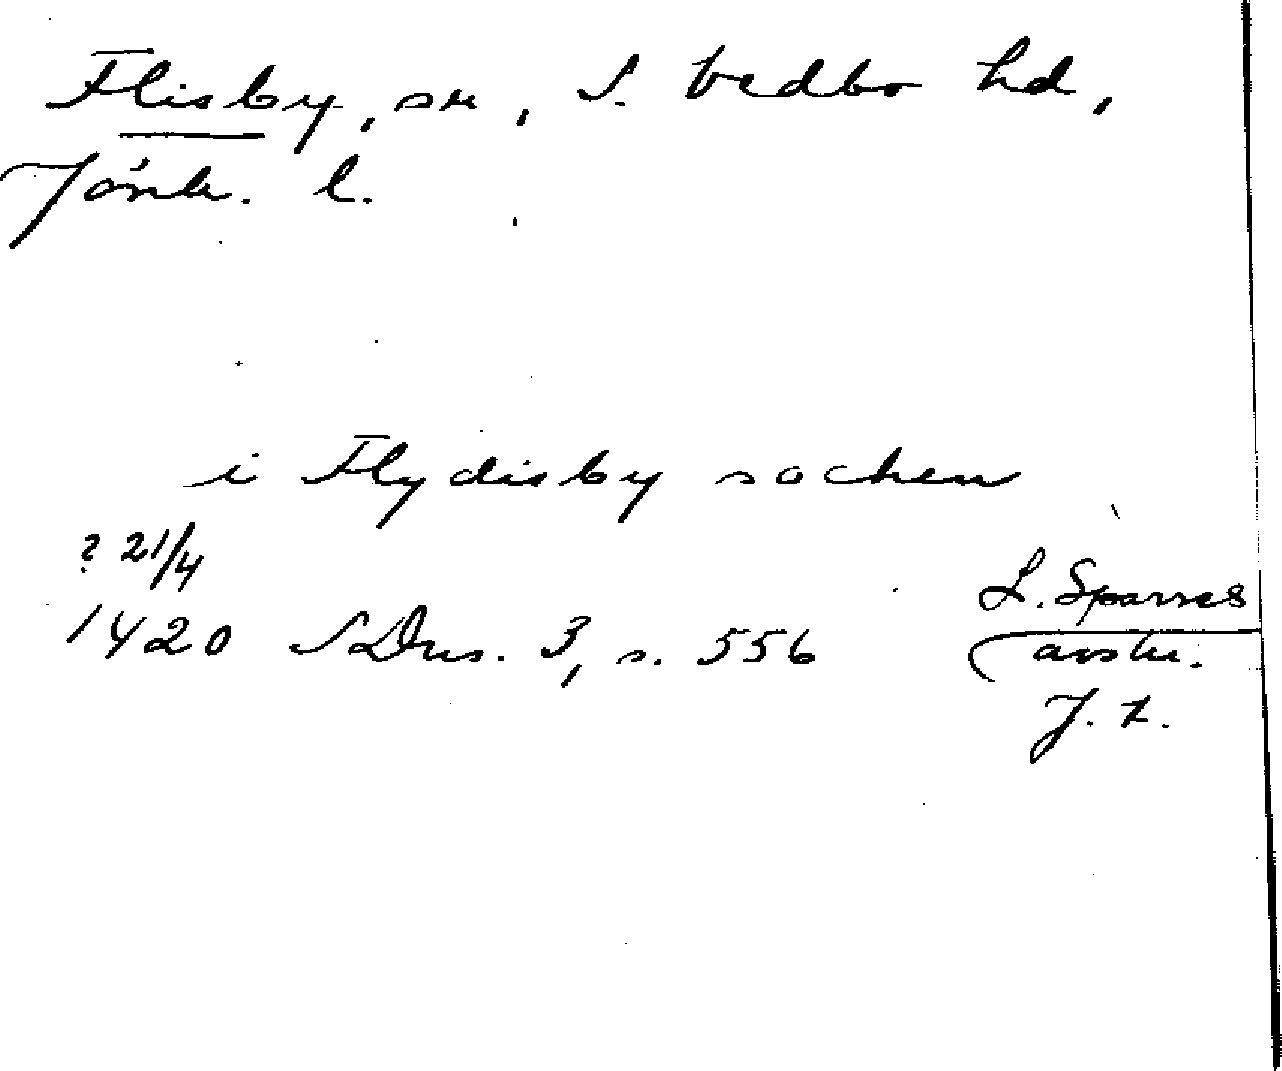 Flisby, sn, S. Vedbo hd,
Jönk. l.
i Flydisby sochen
? 21/4
1420 SDns. 3, s. 556
L. Sparres
avskr.